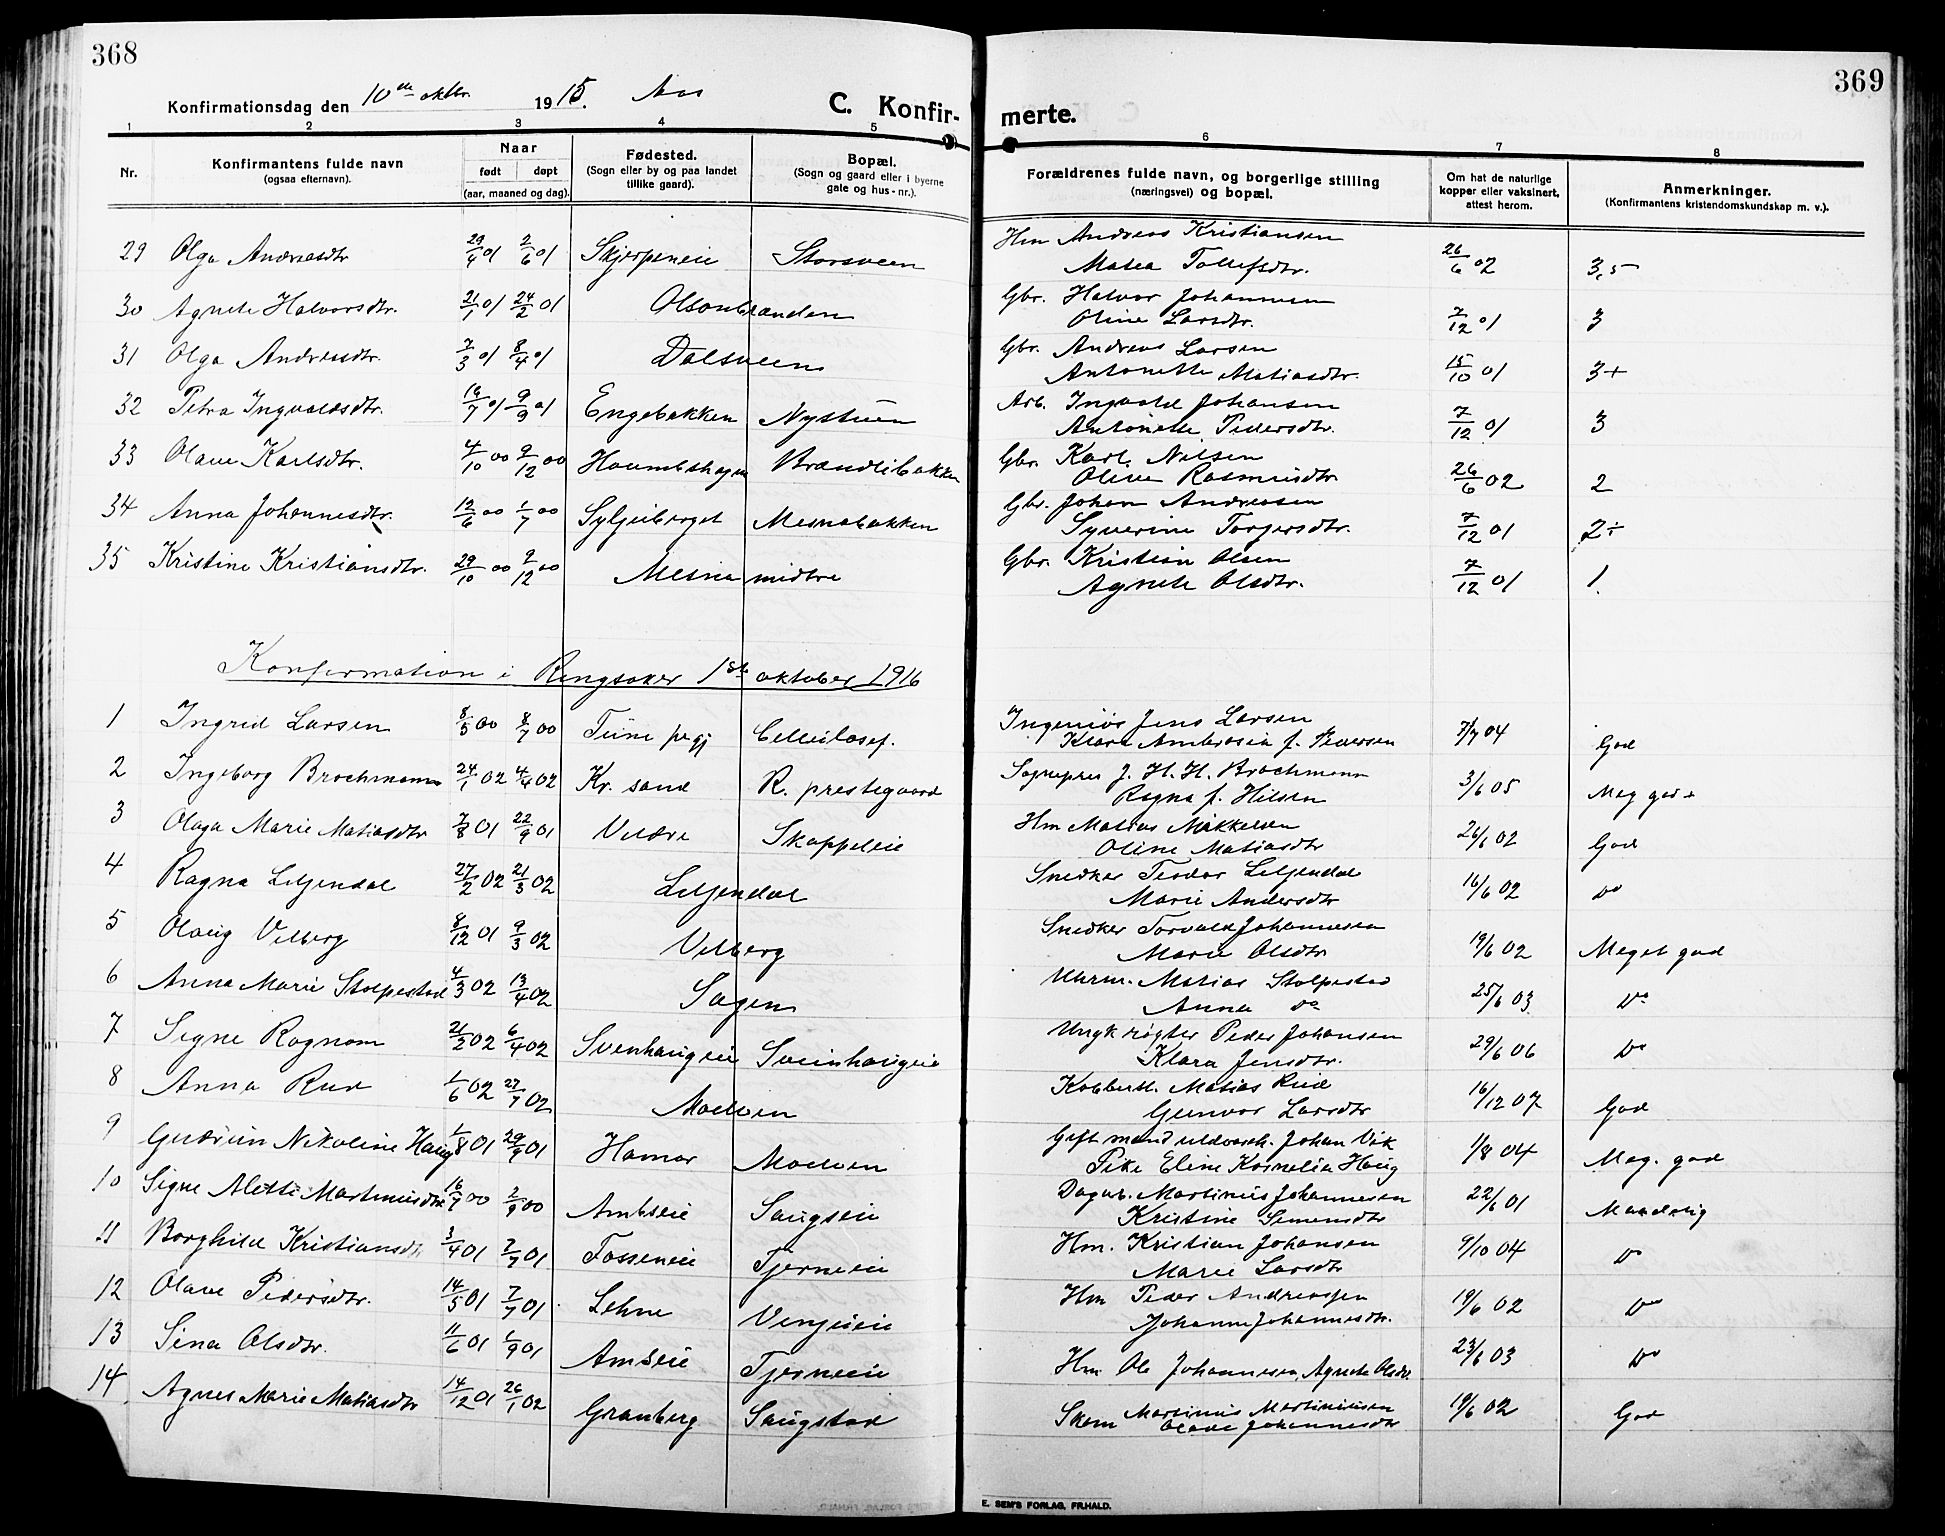 368
369
Konfirmationsdag den 10de oktbr. 1915. Aas
C. Konfir- merte.
1 2 3 4 5 6 7 8
Nr.
Konfirmantens fulde navn
(ogsaa efternavn).
Naar
født døpt
(aar, maaned og dag).
Fødested.
(Sogn eller by og paa landet
tillike gaard).
Bopæl.
(Sogn og gaard eller i byerne
gate og hus-nr.).
Forældrenes fulde navn, og borgerlige stilling
(næringsvei) og bopæl.
Om hat de naturlige
kopper eller vaksinert,
attest herom.
Anmerkninger.
(Konfirmantens kristendomskundskap m. v.).
29 Olga Andreasdtr 29/4 01 2/6 01 Skjerpeneie Storsveen Hm Andreas Kristiansen 26/6 02 3,5
Matea Tollefsdtr.
30 Agnete Halvorsdtr. 21/1 01 24/2 01 Olsonbranden Gbr. Halvor Johannesen 7/12 01 3
Oline Larsdtr.
31 Olga Andreasdtr. 7/3 01 8/4 01 Dalsveen Gbr. Andreas Larsen 15/10 01 3+
Antonette Matiasdtr.
32 Petra Ingvaldsdtr. 16/7 01 9/9 01 Engebakken Nystuen Arb. Ingvald Johansen 7/12 01 3
Antonette Pedersdtr.
33 Olave Karlsdtr. 4/10 00 9/12 00 Brændlibakken Gbr. Karl Nilsen 26/6 02 2
Oline Rasmusdtr
34 Anna Johannesdtr. 12/6 00 1/7 00 Syljeberget Mesnabakken Gbr. Johan Andreasen 7/12 01 2÷
Syverine Torgersdtr.
35 Kristine Kristiansdtr. 29/10 00 9/12 00 Mesna midtre Gbr. Kristian Olsen 7/12 01 1.
Agnete Olsdtr.
Konfirmation i Ringsaker 1ste oktober 1916
1 Ingrid Larsen 8/5 00 8/7 00 Tiine Cellulosef. Ingeniør Jens Larsen 7/7 04 God
Klara Ambrosia f. Pedersen
2 Ingeborg Brochmann 24/1 02 4/4 02 Kr. sand R. prestegaard Sognepres J. H. H. Brochmann 3/6 05 Meg god+
Ragna f. Hilsen
3 Olaga Marie Matiasdtr 7/8 01 22/9 01 Veldre Skappeleie Hm Matias Mikkelsen 26/6 02 God
Oline Matiasdtr
4 Ragna Liljendal 27/2 02 21/3 02 Liljendal Snedker Teodor Liljendal 16/6 02 Do
Marie Andersdtr
5 Olaug Velberg 8/12 01 9/3 02 Velberg Snedker Torvald Johannesen 19/6 02 Meget god
Marie Olsdtr
6 Anna Marie Stolpestad 4/3 02 13/4 02 Sagen Uhrm. Matias Stolpestad 25/6 03 Do
Anna do
7 Signe Rognom 21/2 02 6/4 02 Svenhaugeie Sveinhaugeie Ungk røgter Peder Johansen 29/6 06 Do
Klara Jensdtr.
8 Anna Rud 1/6 02 27/7 02 Moelven Kobbersl. Matias Rud 16/12 07 God
Gunvor Larsdtr
9 Gudrun Nikoline Haug 1/8 01 29/9 01 Hamar Moelven Gift mand uldvasch. Johan Vik 1/8 04 Meg. god
Pike Eline Kornelia Haug
10 Signe Alette Martinusdtr 16/7 00 2/9 00 Ambseie Saugseie Dagarb. Martinus Johannesen 22/6 01 Maadelig
Kristine Simensdtr
11 Borghild Kristiansdtr 3/4 01 7/7 01 Fosseneie Tjerneeie Hm. Kristian Johansen 9/10 04 Do
Marie Larsdtr
12 Olave Pedersdtr. 14/5 01 7/7 01 Lehne Venjeeie Hm Peder Andreassen 19/6 02 Do
Johanne Johannesdtr.
13 Sina Olsdtr. 11/6 01 1/9 01 Amseie Tjerneeie Hm Ole Johannesen, Agnete Olsdtr. 23/6 03 Do
14 Agnes Marie Matiasdtr 14/12 01 26/1 02 Granberg Saugstad Skom Martinus Martinusen 19/6 02 God
Olave Johannesdtr
E. SEM'S FORLAG, FR.HALD.